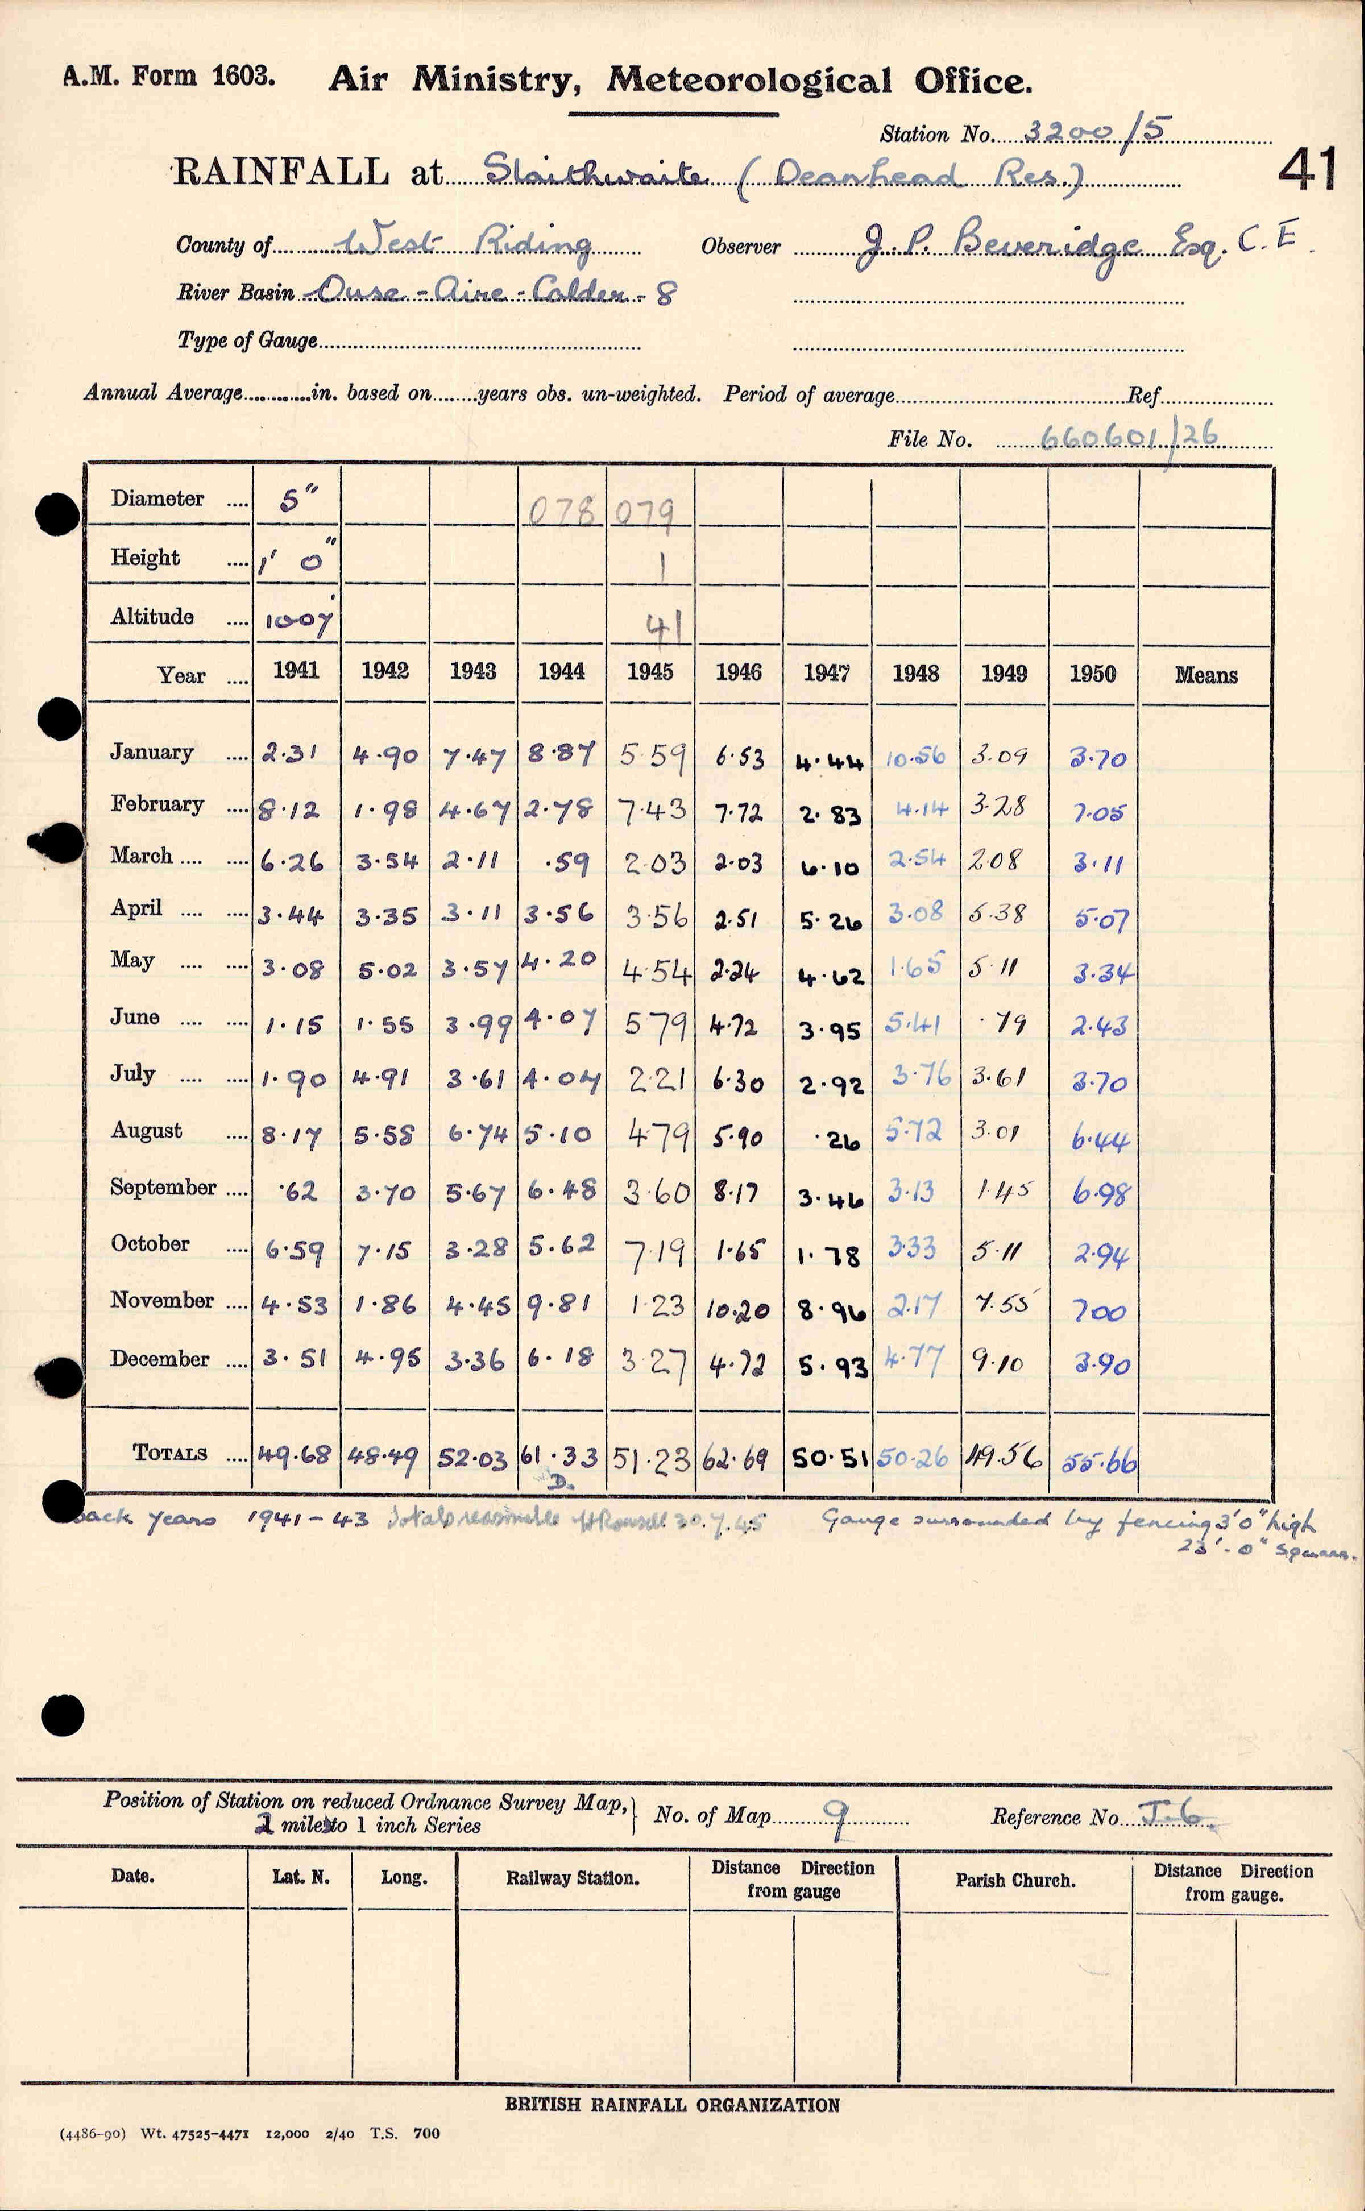 A.M. Form 1603. Air Ministry, Meteorological Office.
Station No. 3200/5
RAINFALL at Slaithwaite (Deanhead Res.)
41
County of West Riding Observer J. P. Beveridge Esq. C. E.
River Basin Ouse - Aire - Calder - 8
Type of Gauge
Annual Average in. based on years obs. un-weighted. Period of average Ref
File No. 660601/26
Diameter 5" 078 079
Height 1' 0" 1
Altitude 1007' 41
Year 1941 1942 1943 1944 1945 1946 1947 1948 1949 1950 Means
January 2.31 4.90 7.47 8.87 5.59 6.53 4.44 10.56 3.09 3.70
February 8.12 1.98 4.67 2.78 7.43 7.72 2.83 4.14 3.28 7.05
March 6.26 3.54 2.11 .59 2.03 2.03 6.10 2.54 2.08 3.11
April 3.44 3.35 3.11 3.56 3.56 2.51 5.26 3.08 5.38 5.07
May 3.08 5.02 3.57 4.20 4.54 2.24 4.62 1.65 5.11 3.34
June 1.15 1.55 3.99 4.07 5.79 4.72 3.95 5.41 .79 2.43
July 1.90 4.91 3.61 4.04 2.21 6.30 2.92 3.76 3.61 3.70
August 8.17 5.58 6.74 5.10 4.79 5.90 .26 5.72 3.01 6.44
September .62 3.70 5.67 6.48 3.60 8.17 3.46 3.13 1.45 6.98
October 6.59 7.15 3.28 5.62 7.19 1.65 1.78 3.33 5.11 2.94
November 4.53 1.86 4.45 9.81 1.23 10.20 8.96 2.17 7.55 7.00
December 3.51 4.95 3.36 6.18 3.27 4.72 5.93 4.77 9.10 3.90
TOTALS 49.68 48.49 52.03 61.33 51.23 62.69 50.51 50.26 49.56 55.66
D.
Back years 1941-43 Totals reasonable 30.7.45 Gauge surrounded by fencing 3'0" high
23'-0" square.
Position of Station on reduced Ordnance Survey Map, No. of Map 9 Reference No. J.6.
2 miles to 1 inch Series
Date. Lat. N. Long. Railway Station. Distance Direction from gauge Parish Church. Distance Direction from gauge.
BRITISH RAINFALL ORGANIZATION
(4486-90) Wt. 47525-4471 12,000 2/40 T.S. 700